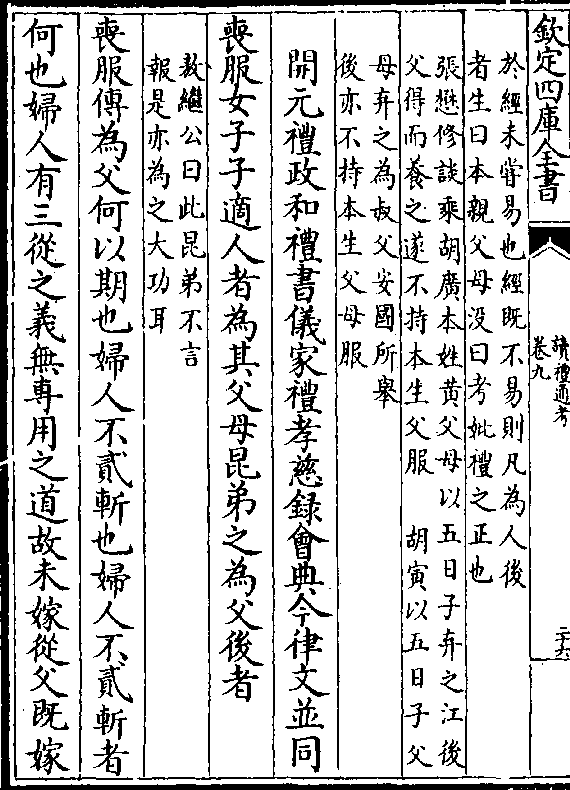 欽定四庫全書
讀禮通考
卷九
二十六
於經未嘗易也經既不易則凡為人後
者生曰本親父母没曰考妣禮之正也
張懋修談乘胡廣本姓黄父母以五日子弃之江後
父得而養之遂不持本生父服　胡寅以五日子父
母弃之為叔父安國所舉
後亦不持本生父母服
開元禮政和禮書儀家禮孝慈録會典今律文並同
喪服女子子適人者為其父母昆弟之為父後者
敖繼公曰此昆弟不言
報是亦為之大功耳
喪服傳為父何以期也婦人不貳斬也婦人不貳斬者
何也婦人有三從之義無専用之道故未嫁從父既嫁